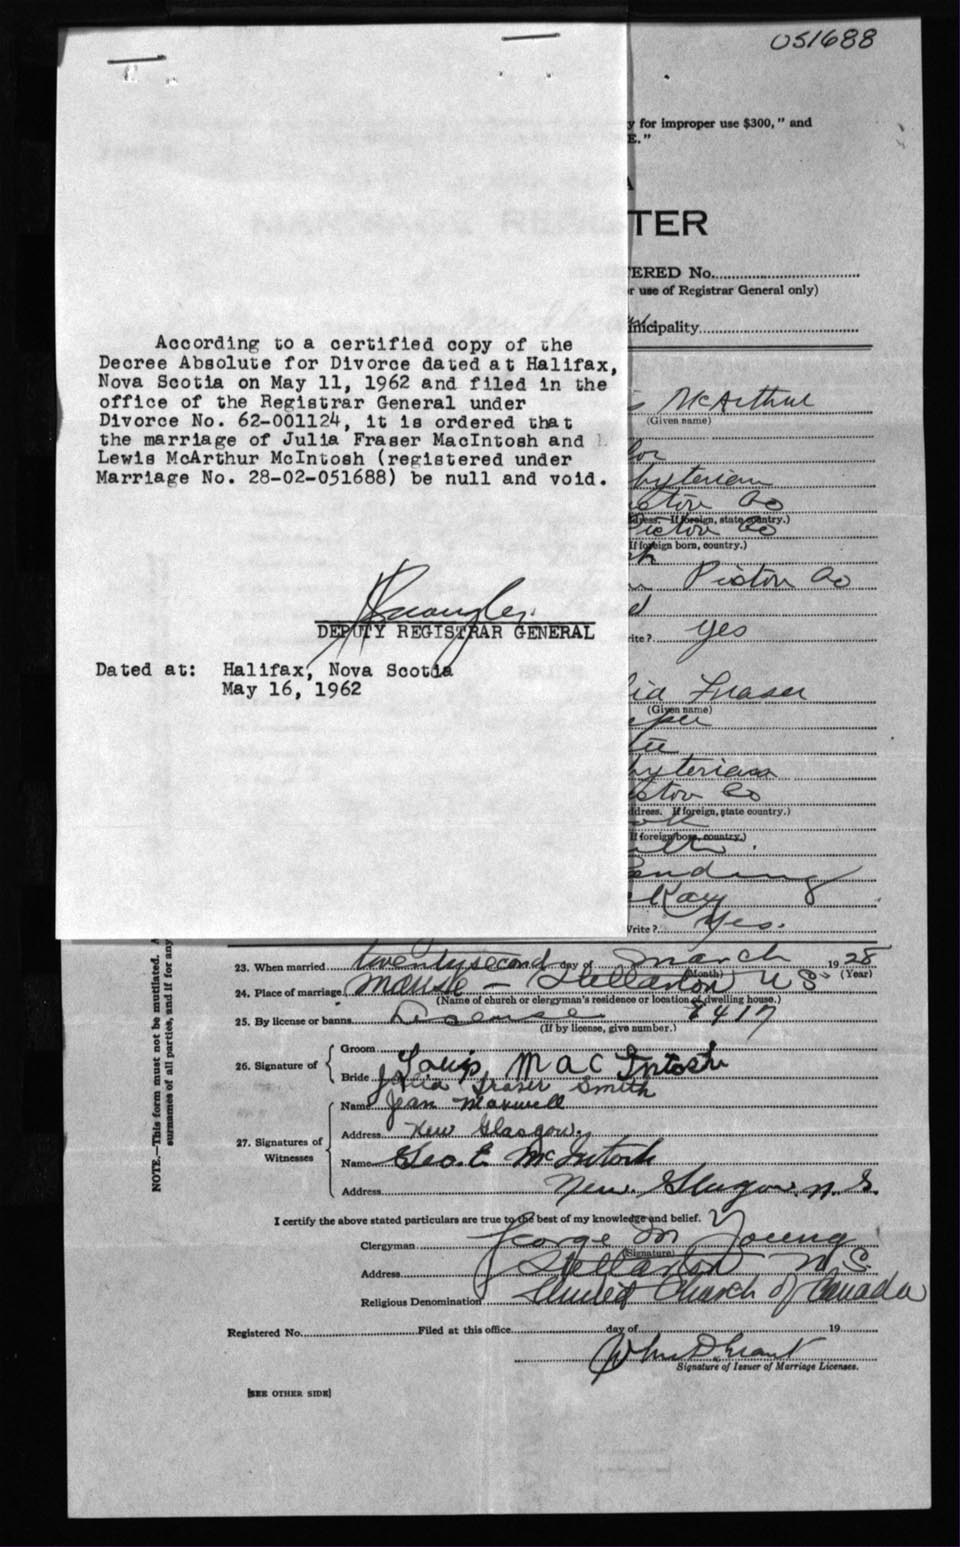 051688
y for improper use $300," and
E."
A
TER
ERED No.
r use of Registrar General only)
nicipality
According to a certified copy of the
Decree Absolute for Divorce dated at Halifax,
Nova Scotia on May 11, 1962 and filed in the
office of the Registrar General under
Divorce No. 62-001124, it is ordered that
the marriage of Julia Fraser MacIntosh and
Lewis McArthur McIntosh (registered under
Marriage No. 28-02-051688) be null and void.
DEPUTY REGISTRAR GENERAL
Dated at: Halifax, Nova Scotia
May 16, 1962
s McArthur
(Given name)
lor
byterian
ictou Co
dress. If foreign, state country.)
Pictou Co
If foreign born, country.)
Pictou Co
d
rite? yes
lia Fraser
(Given name)
eper
byterian
ictou Co
ddress. If foreign, state country.)
If foreign born, country.)
Kay
Write? Yes.
NOTE.—This form must not be mutilated. A
surnames of all parties, and if for any
23. When married twentysecond day of March 1928
(Month) (Year)
24. Place of marriage Manse - Stellarton N S
(Name of church or clergyman's residence or location of dwelling house.)
25. By license or banns License 8417
(If by license, give number.)
26. Signature of
Groom Louis MacIntosh
Bride Julia Fraser Smith
27. Signatures of Witnesses
Name Jean Maxwell
Address New Glasgow.
Name Geo. E. McIntosh
Address New Glasgow. N. S.
I certify the above stated particulars are true to the best of my knowledge and belief.
Clergyman George M Young
(Signature)
Address Stellarton N.S.
Religious Denomination United Church of Canada
Registered No. Filed at this office day of 19
Signature of Issuer of Marriage Licenses.
[SEE OTHER SIDE]